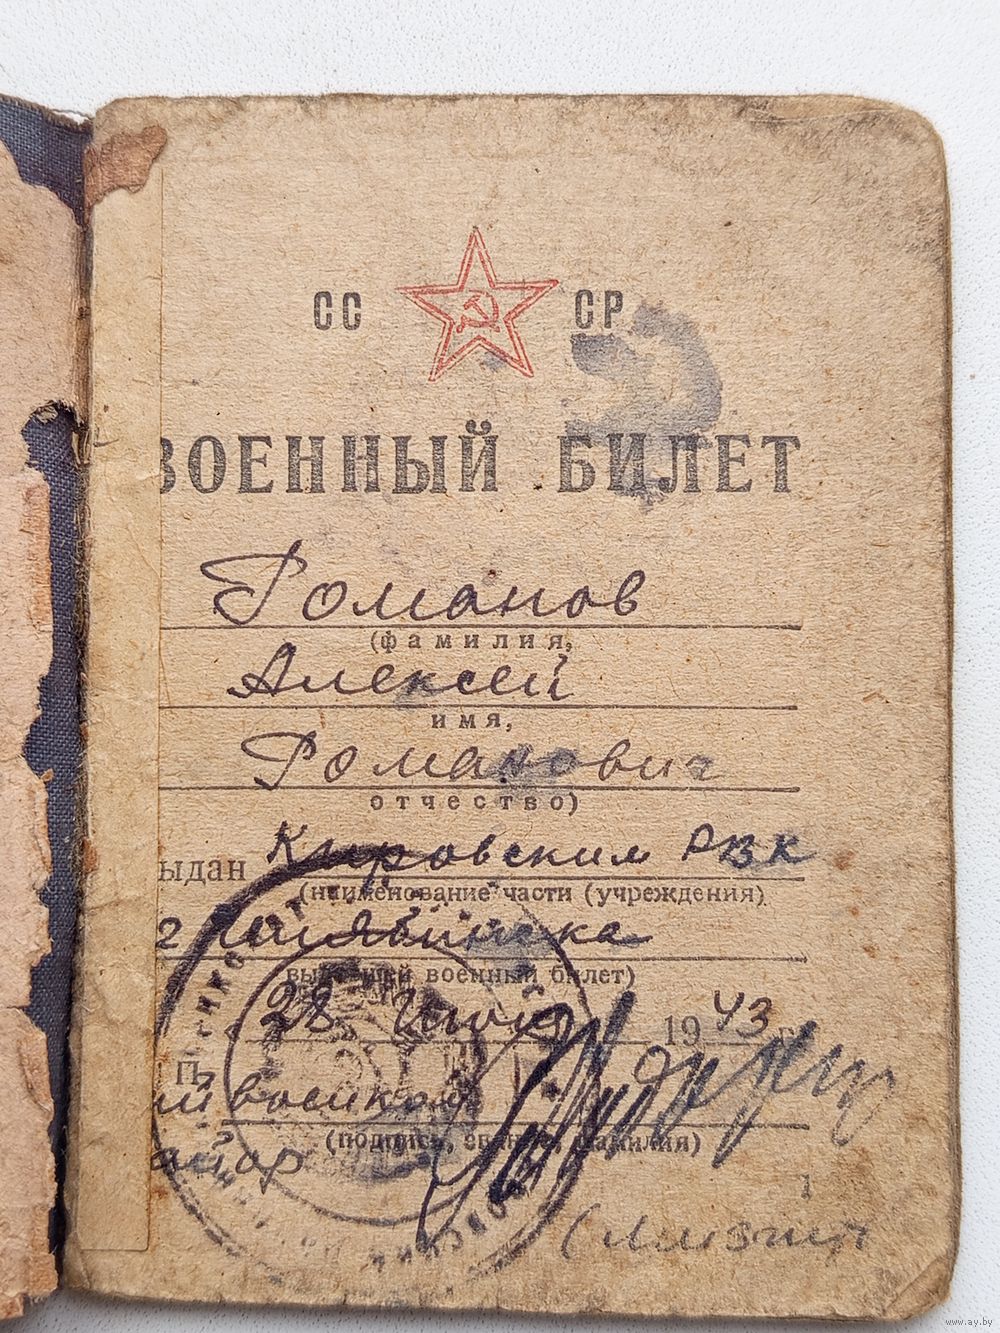 СС СР
ВОЕННЫЙ БИЛЕТ
Романов
(фамилия,
Алексей
имя,
Романович
отчество)
ыдан Кировским РВК
(наименование части (учреждения)
г Челябинска
выдавшей военный билет)
28 19 43 г.
П.
(подпись, звание, фамилия)
1
www.ay.by